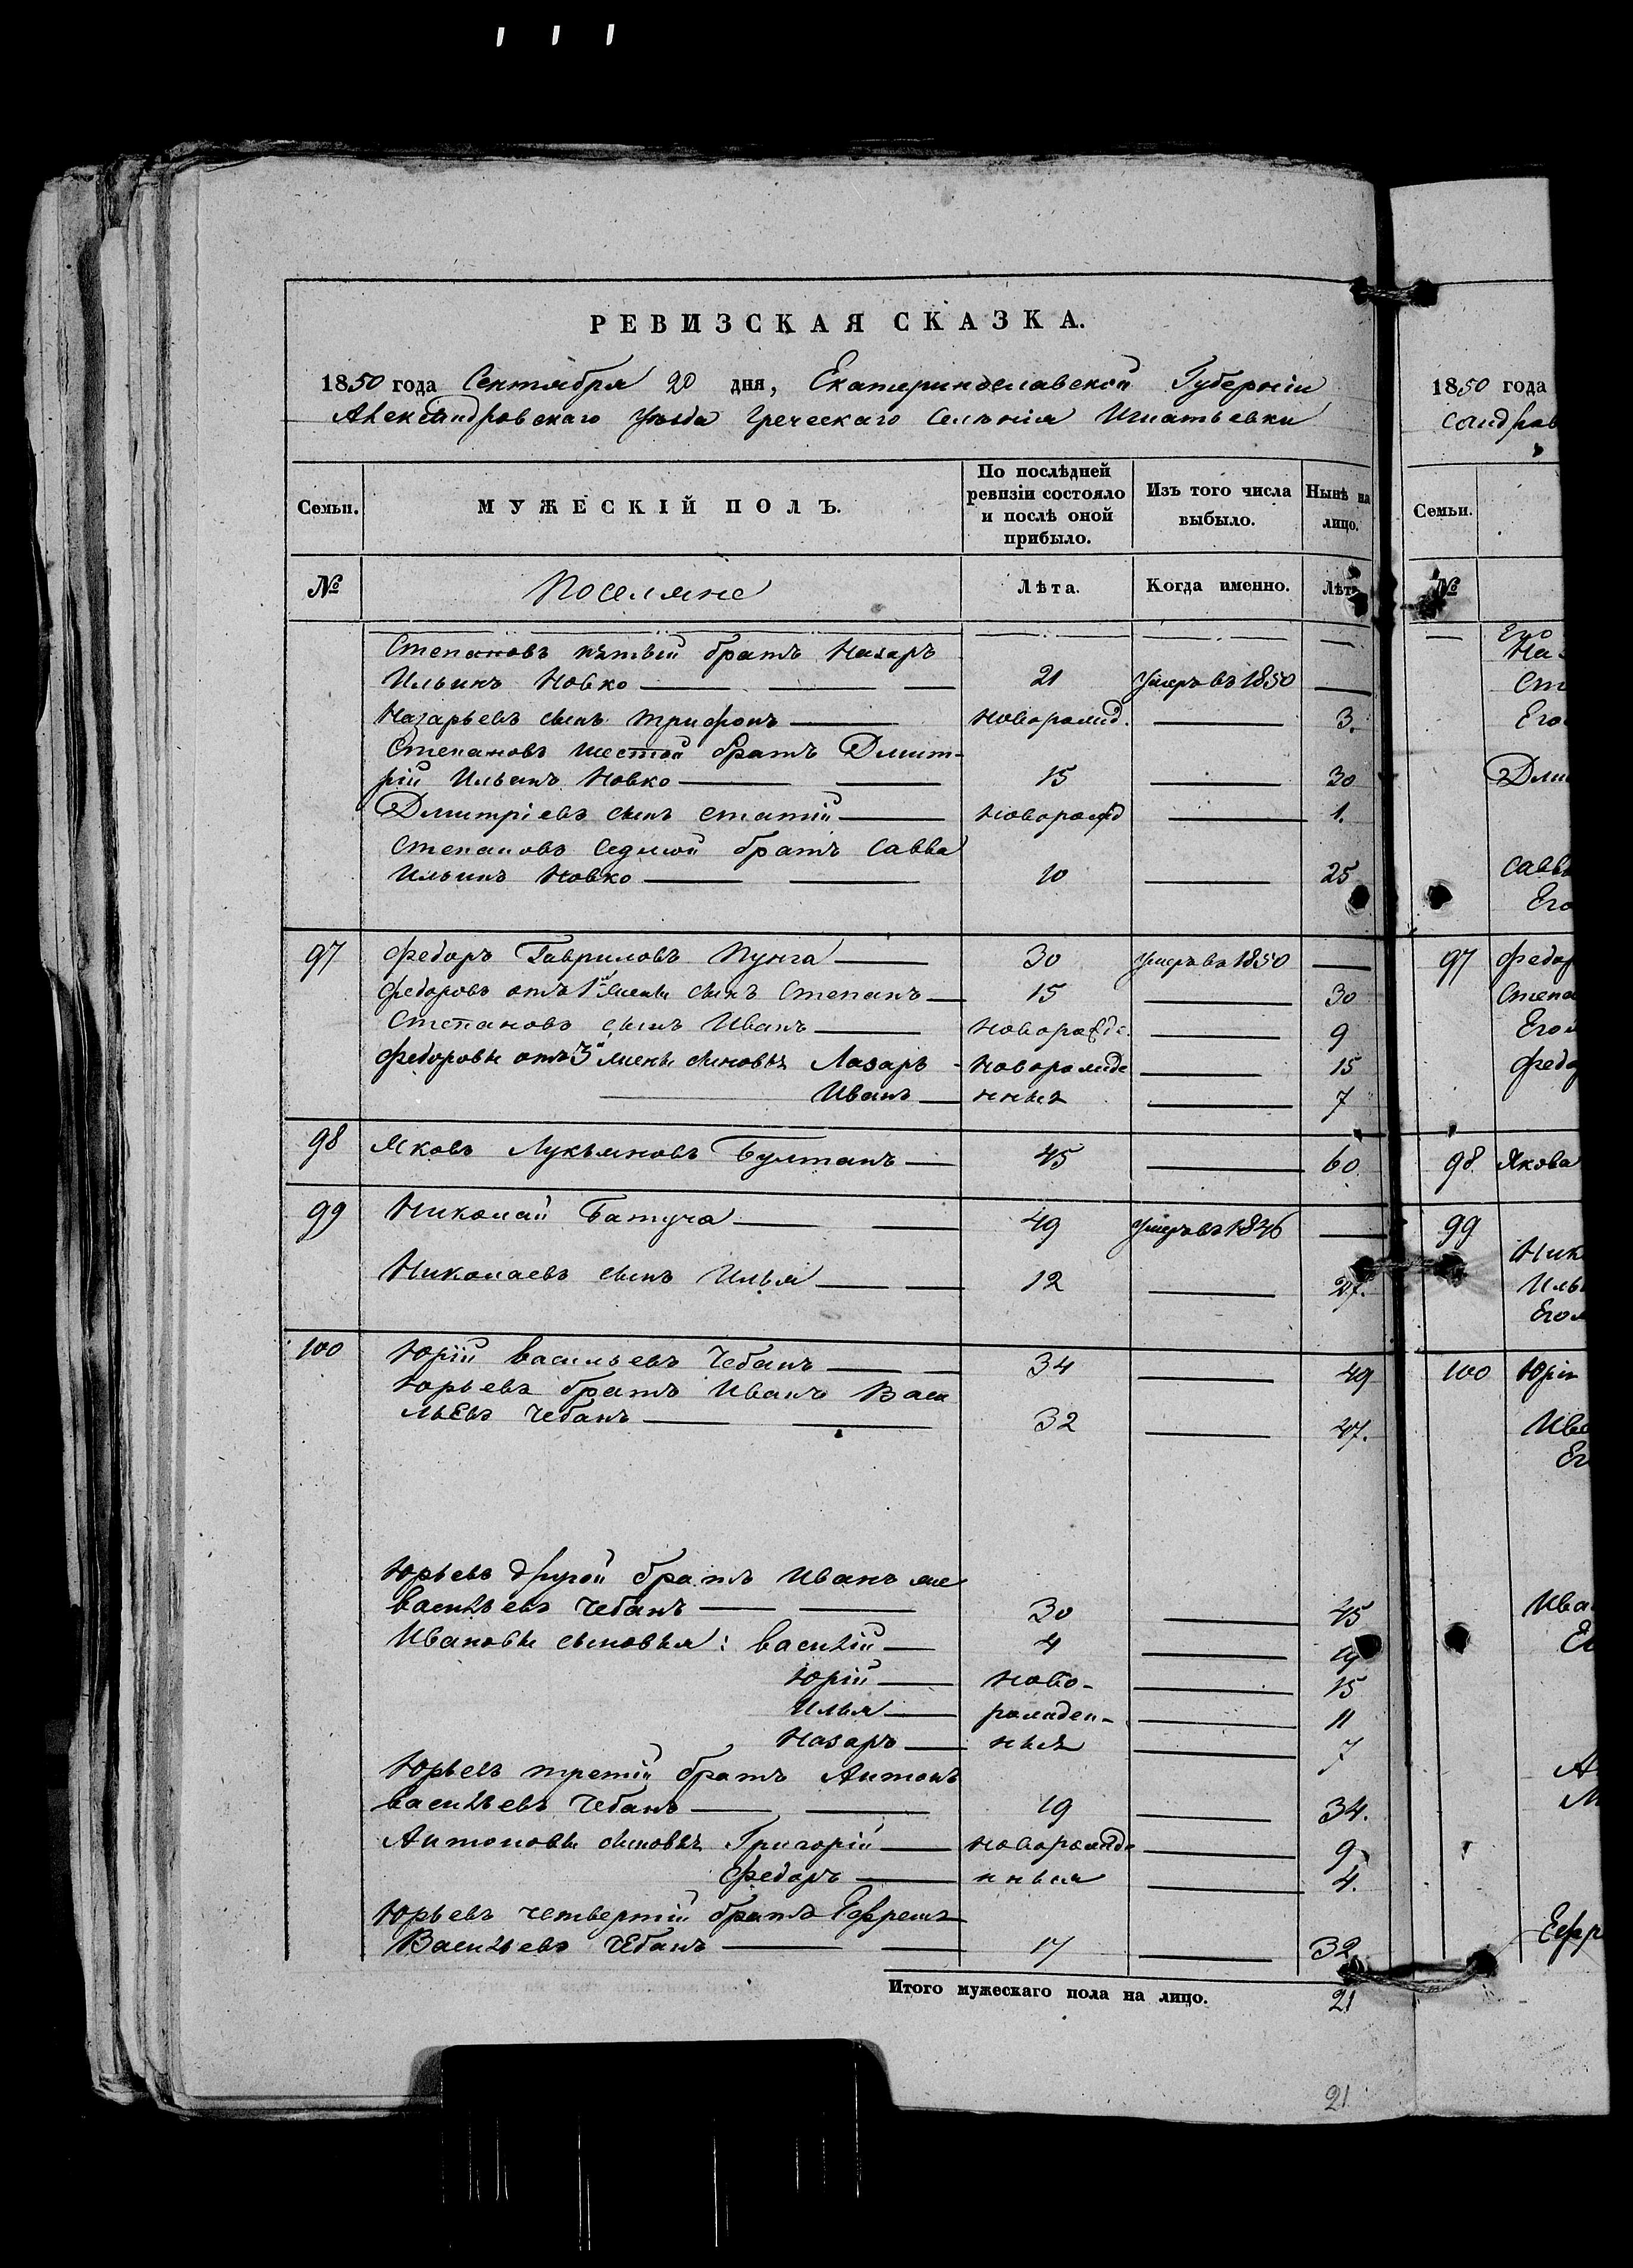 РЕВИЗСКАЯ СКАЗКА.
1850 года Сентября 20 дня, Екатеринославской Губерніи
Александровскаго уѣзда Греческаго Селенія Игнатьевки
Семьи. МУЖЕСКІЙ ПОЛЪ. По послѣдней ревизіи состояло и послѣ оной прибыло. Изъ того числа выбыло. Нынѣ на лицо.
№ Поселяне Лѣта. Когда именно. Лѣта
Степановъ пятый братъ Назаръ
Ильинъ Новко 21 умеръ въ 1850
Назарьевъ сынъ Трифонъ новорожд. 3.
Степановъ шестой братъ Дмит-
рій Ильинъ Новко 15 30
Дмитріевъ сынъ Статій новорожд 1.
Степановъ седмой братъ Савва
Ильинъ Новко 10 25
97 Федоръ Гавриловъ Пунга 30 умеръ въ 1850
Федоровъ отъ 1й жены сынъ Степанъ 15 30
Степановъ сынъ Иванъ новорожде. 9
Федоровы отъ 3й жены сыновья Лазарь новорожде 15
Иванъ нныя 7
98 Яковъ Лукьяновъ Бултанъ 45 60
99 Николай Батуча 49 умеръ въ 1846
Николаевъ сынъ Илья 12 27.
100 Юрій Васильевъ Чебанъ 34 49
Юрьевъ братъ Иванъ Васи
льевъ Чебанъ 32 47.
Юрьевъ другой братъ Иванъ же
Васильевъ Чебанъ 30 45
Ивановы сыновья: Василій 4 19
Юрій ново- 15
Илья рожден- 11
Назаръ ныя 7
Юрьевъ третій братъ Антонъ
Васильевъ Чебанъ 19 34.
Антоновы сыновья Григорій новорожде 9
Федоръ нныя 4.
Юрьевъ четвертій братъ Ефремъ
Васильевъ Чебанъ 17 32
Итого мужескаго пола на лицо. 21
21
1850 года
сандров
Семьи.
№
Его
На
Ст
Его
Дми
Савв
Его
97 Федор
Степа
Его
Федо
98 Якова
99
Ник
Иль
Его
100 Юрі
Ива
Ег
Ива
Ег
Ефр